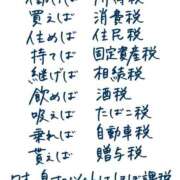 買えば 消費税
住めば 住民税
持てば 固定資産税
継げば 相続税
飲めば 酒税
吸えば たばこ税
乗れば 自動車税
貰えば 贈与税